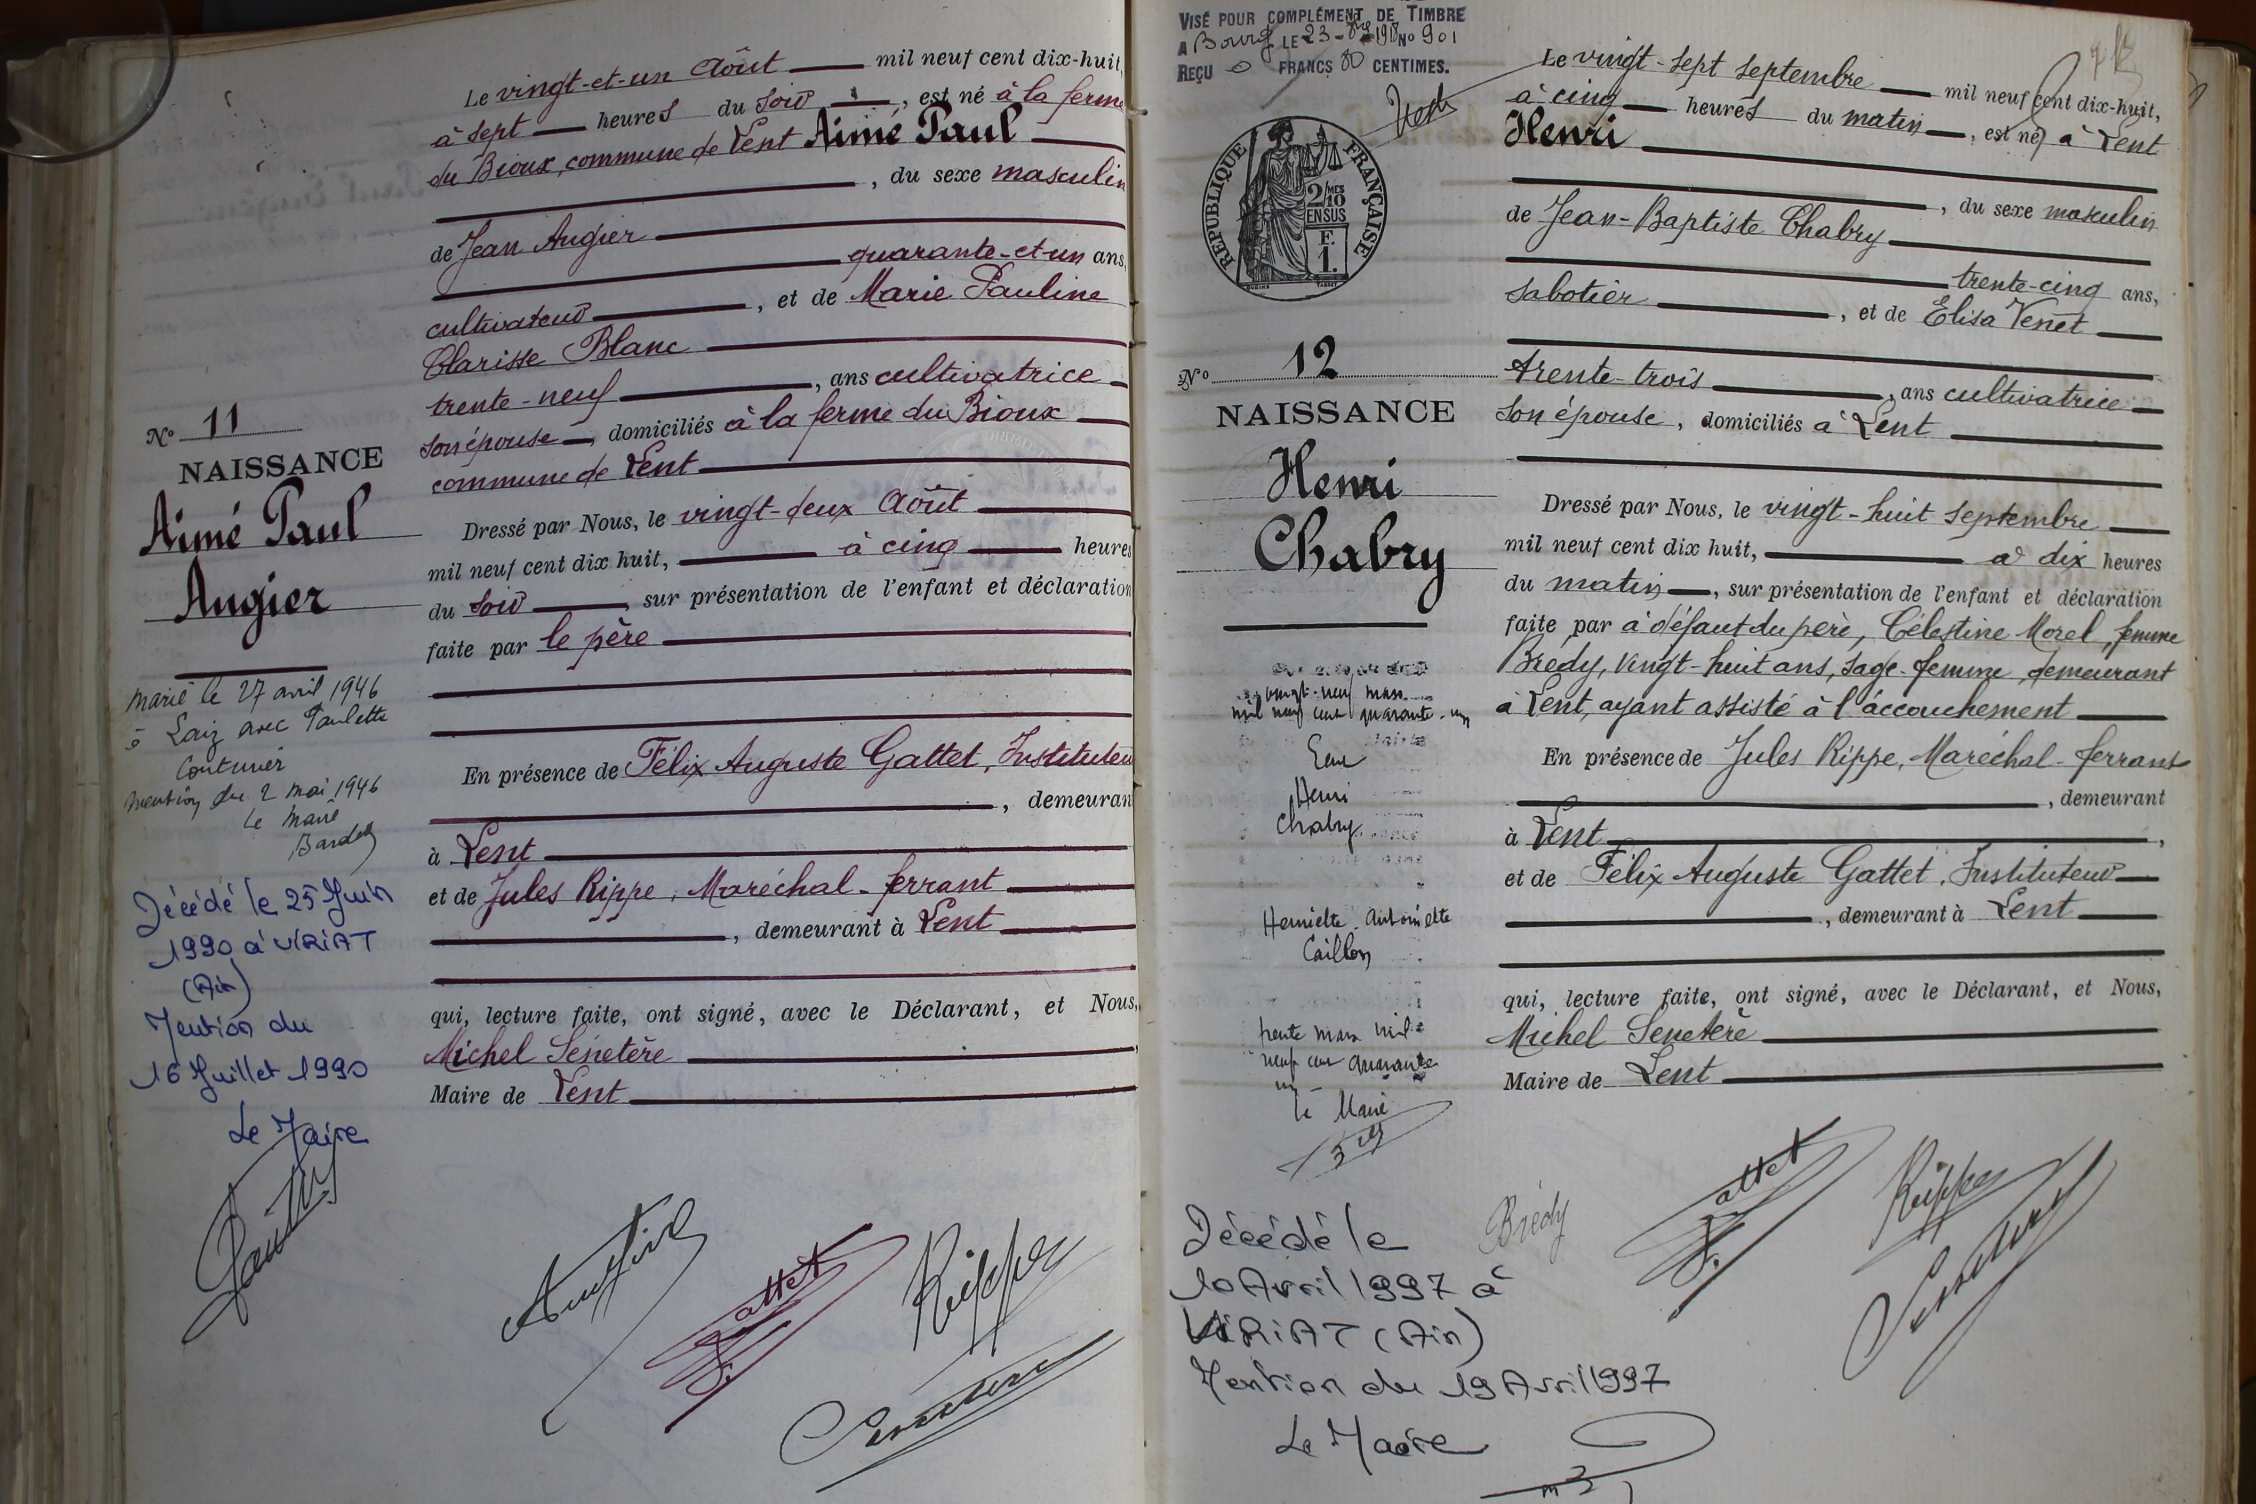 Le vingt-et-un Août mil neuf cent dix-huit,
à sept heures du soir, est né à la ferme
du Bioux, commune de Lent Aimé Paul
, du sexe masculin
de Jean Augier
quarante-et-un ans,
cultivateur, et de Marie Pauline
Clarisse Blanc
trente-neuf, ans cultivatrice
son épouse, domiciliés à la ferme du Bioux
commune de Lent
Dressé par Nous, le vingt-deux Août
mil neuf cent dix huit, à cinq heures
du soir, sur présentation de l'enfant et déclaration
faite par le père
En présence de Félix Auguste Gattet, Instituteur
, demeurant
à Lent
et de Jules Rippe, Maréchal-ferrant
, demeurant à Lent
qui, lecture faite, ont signé, avec le Déclarant, et Nous,
Michel Sénetère
Maire de Lent
No 11
NAISSANCE
Aimé Paul
Augier
Marié le 27 avril 1946
à Laiz avec Paulette
Couturier
mention du 2 mai 1946
Le Maire
Décédé le 25 Juin
1990 à VIRIAT
(Ain)
Mention du
16 Juillet 1990
Le Maire
Augier
Gattet
Rippe
Senetere
VISÉ POUR COMPLÉMENT DE TIMBRE
A Bourg LE 23 No 901
REÇU 0 FRANCS 80 CENTIMES.
RÉPUBLIQUE FRANÇAISE
2/10 MES
EN SUS
F.
1.
No 12
NAISSANCE
Henri
Chabry
vingt-neuf mars
mil neuf cent quarante-un
Henri
Chabry
Henriette Antoinette
Caillon
trente mars mil
neuf cent quarante
un
Le Maire
Décédé le
10 Avril 1997 à
VIRIAT (Ain)
Mention du 19 Avril 1997
Le Maire
Le vingt-sept septembre mil neuf cent dix-huit,
à cinq heures du matin, est né à Lent
Henri
, du sexe masculin
de Jean-Baptiste Chabry
trente-cinq ans,
sabotier, et de Elisa Venet
trente-trois, ans cultivatrice
son épouse, domiciliés à Lent
Dressé par Nous, le vingt-huit septembre
mil neuf cent dix huit, à dix heures
du matin, sur présentation de l'enfant et déclaration
faite par à défaut du père, Célestine Morel, femme
Brédy, vingt-huit ans, sage-femme demeurant
à Lent, ayant assisté à l'accouchement
En présence de Jules Rippe, Maréchal-ferrant
, demeurant
à Lent,
et de Félix Auguste Gattet, Instituteur
, demeurant à Lent
qui, lecture faite, ont signé, avec le Déclarant, et Nous,
Michel Senetère
Maire de Lent
Brédy
Gattet
Rippe
Senetere